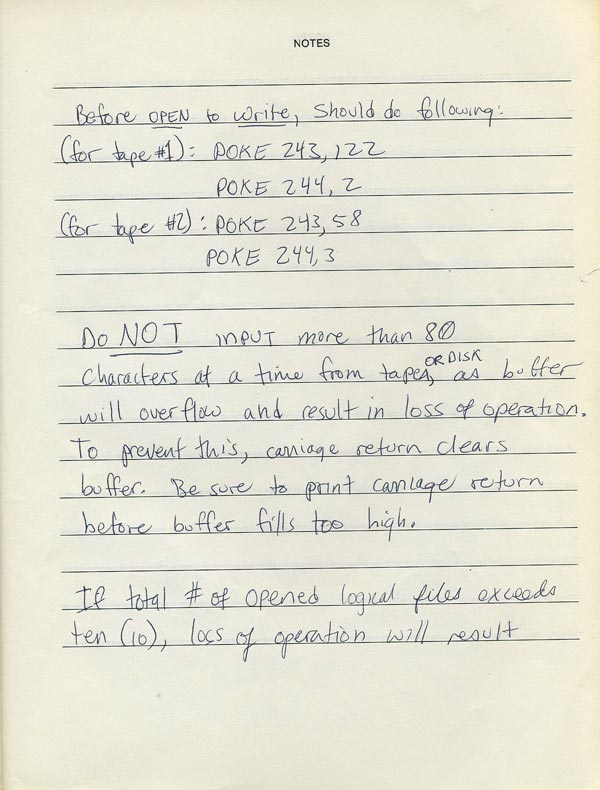 NOTES
Before OPEN to Write, should do following:
(for tape #1): POKE 243,122
POKE 244,2
(for tape #2): POKE 243,58
POKE 244,3
Do NOT INPUT more than 80
characters at a time from tapes, OR DISK as buffer
will overflow and result in loss of operation.
To prevent this, carriage return clears
buffer. Be sure to print carriage return
before buffer fills too high.
If total # of opened logical files exceeds
ten (10), loss of operation will result